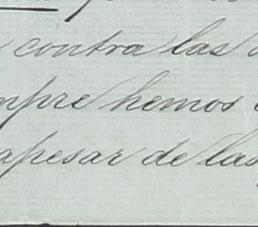 contra las
mpre hemos
apesar de las